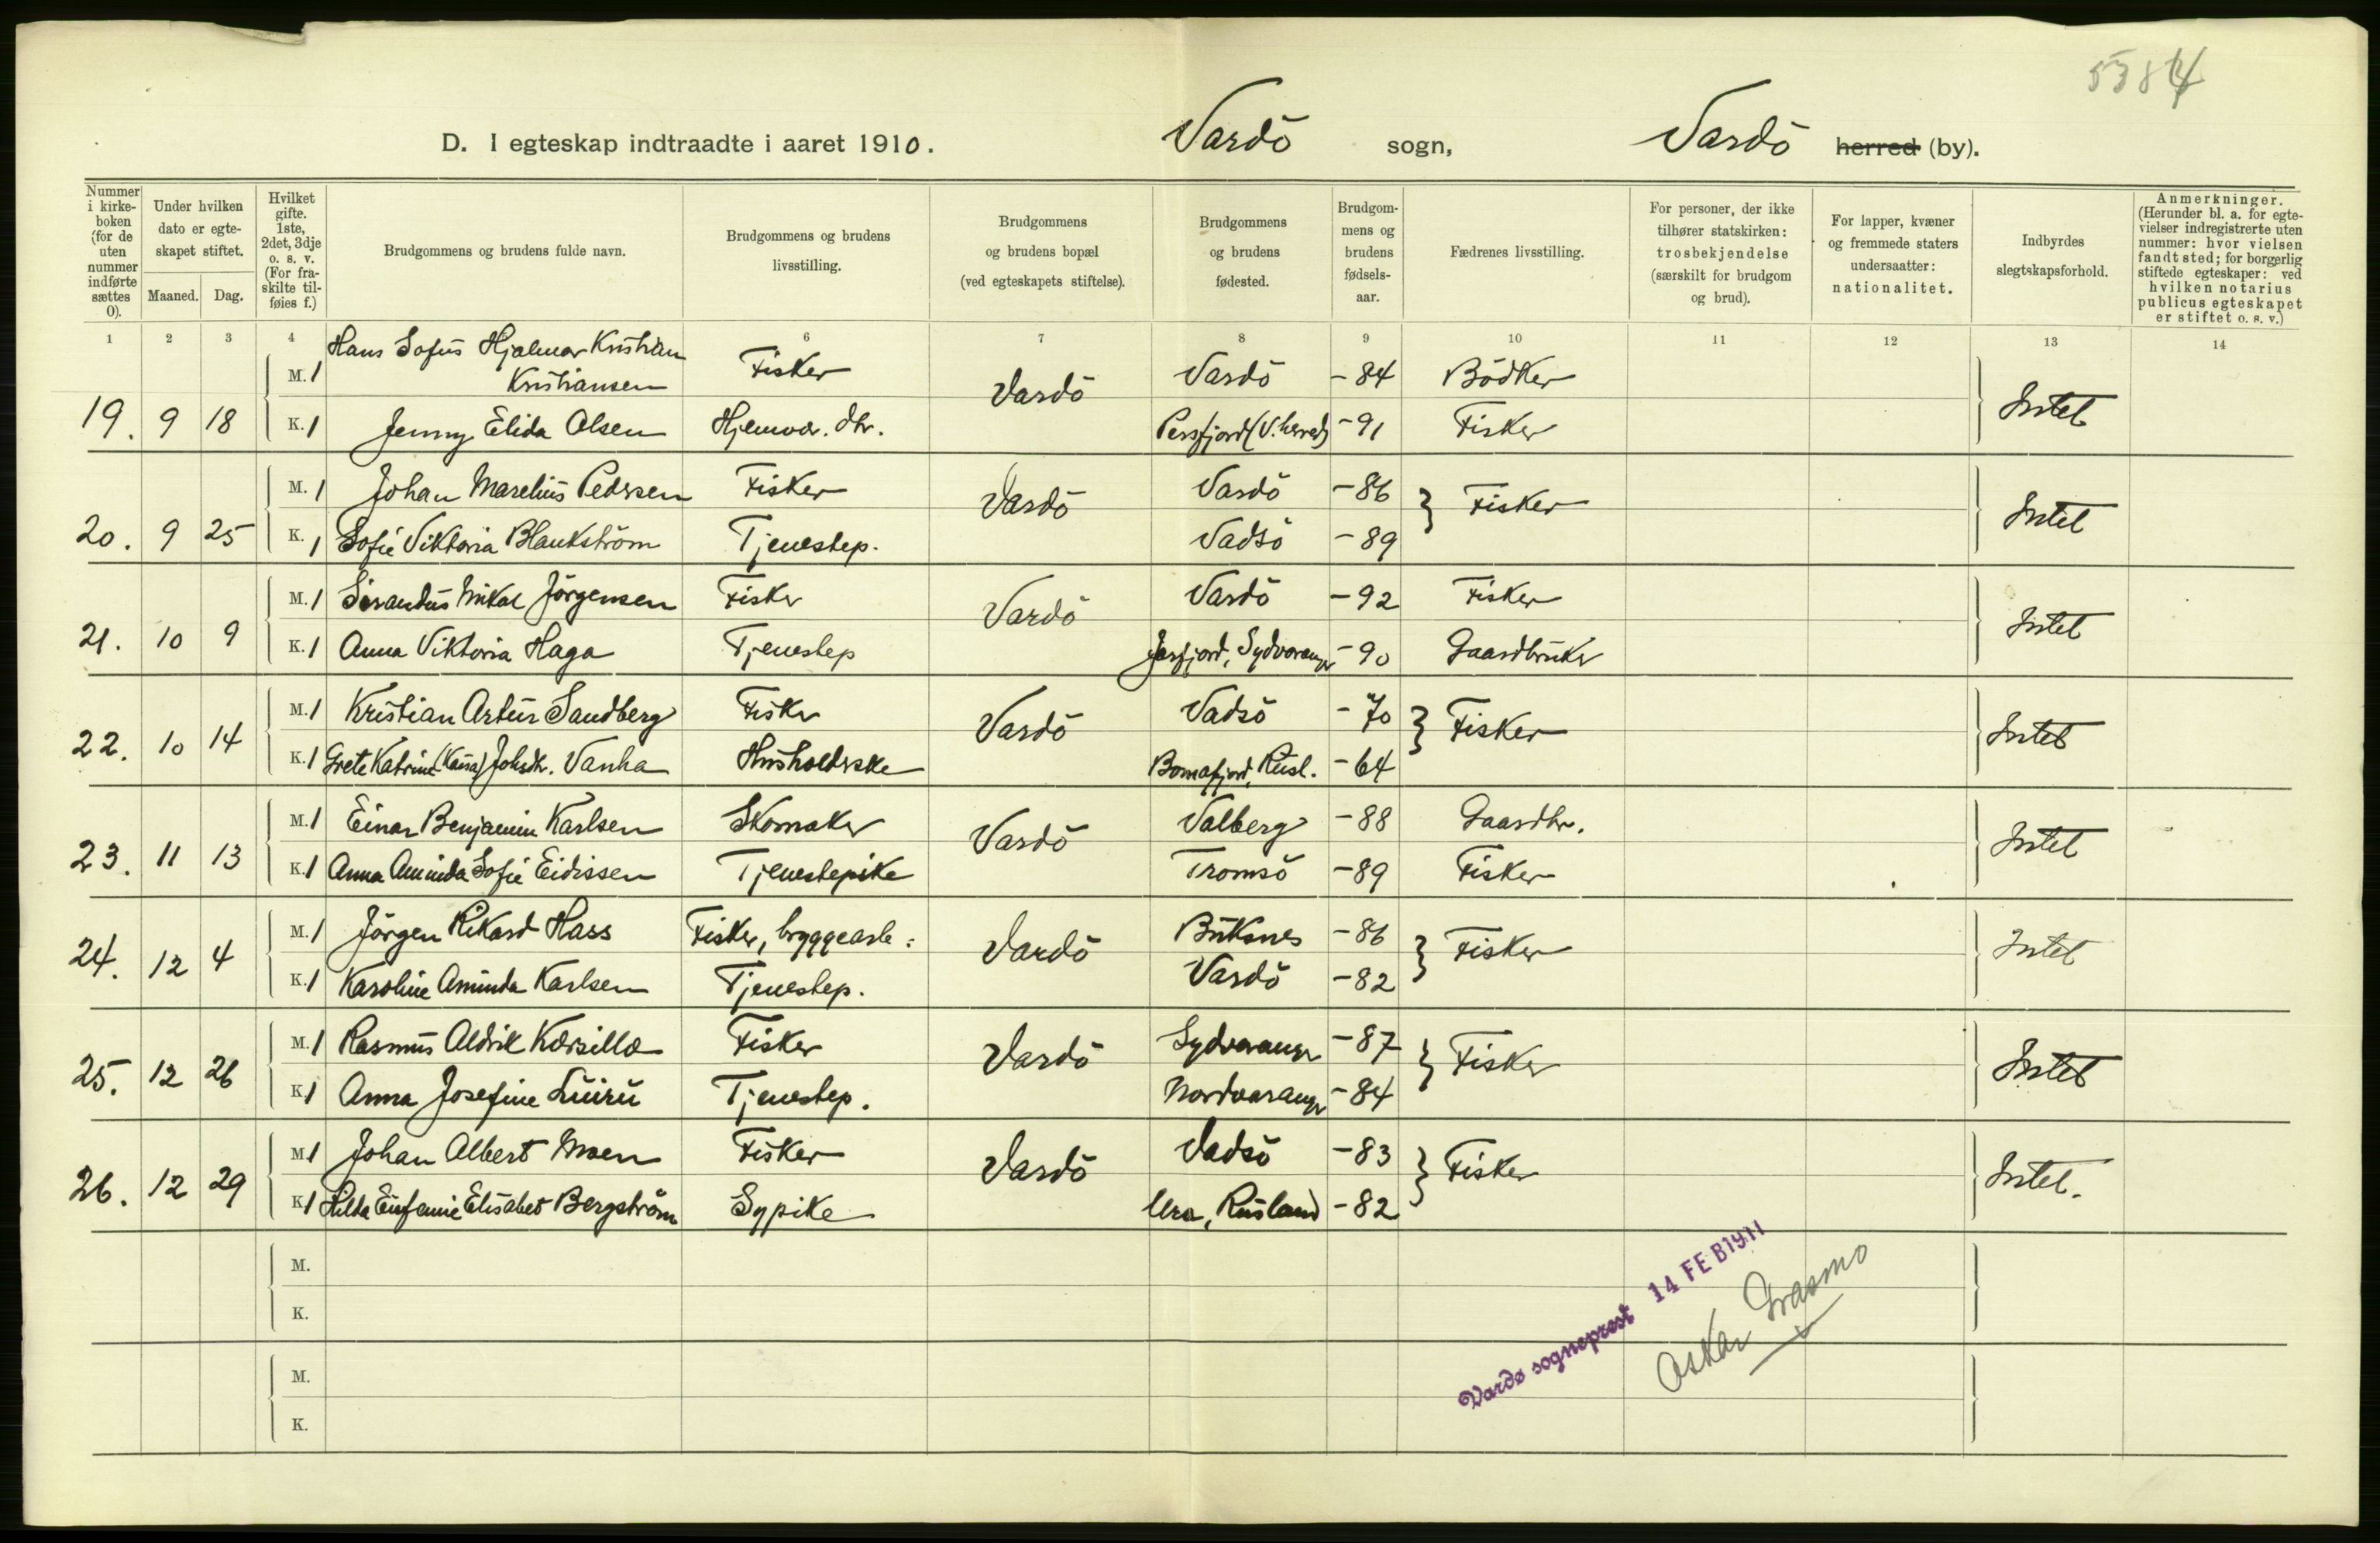 5384
D. I egteskap indtraadte i aaret 1910. Vardö sogn, Vardö herred (by).
Nummer i kirkeboken (for de uten nummer indførte sættes 0).
Under hvilken dato er egteskapet stiftet.
Maaned. Dag.
Hvilket gifte. 1ste, 2det, 3dje o. s. v. (For fraskilte tilføies f.)
Brudgommens og brudens fulde navn.
Brudgommens og brudens livsstilling.
Brudgommens og brudens bopæl (ved egteskapets stiftelse).
Brudgommens og brudens fødested.
Brudgommens og brudens fødselsaar.
Fædrenes livsstilling.
For personer, der ikke tilhører statskirken: trosbekjendelse (særskilt for brudgom og brud).
For lapper, kvæner og fremmede staters undersaatter: nationalitet.
Indbyrdes slegtskapsforhold.
Anmerkninger. (Herunder bl. a. for egtevielser indregistrerte uten nummer: hvor vielsen fandt sted; for borgerlig stiftede egteskaper: ved hvilken notarius publicus egteskapet er stiftet o. s. v.)
1 2 3 4 6 7 8 9 10 11 12 13 14
M. 1 Hans Sofus Hjalmar Kristian Kristiansen Fisker Vardö Vardö -84 Bödker Intet
19. 9 18 K. 1 Jenny Elida Olsen Hjemvær. dtr. Persfjord (V. herred) -91 Fisker
M. 1 Johan Marelius Pedersen Fisker Vardö Vardö -86 } Fisker Intet
20. 9 25 K. 1 Sofie Viktoria Blankström Tjenestep. Vadsö -89
M. 1 Mikal Jörgensen Fisker Vardö Vardö -92 Fisker Intet
21. 10 9 K. 1 Anna Viktoria Haga Tjenestep Jarfjord, Sydvaranger -90 Gaardbruker
M. 1 Kristian Artur Sandberg Fisker Vardö Vadsö -70 } Fisker Intet
22. 10 14 K. 1 Grete Katrine (Kaisa) Johsdtr. Vanha Husholderske Bomafjord, Rusl. -64
M. 1 Einar Benjamin Karlsen Skomaker Vardö Valberg -88 Gaardbr. Intet
23. 11 13 K. 1 Anna Aminda Sofie Eidissen Tjenestepike Tromsö -89 Fisker
M. 1 Jörgen Rikard Hass Fisker, bryggearb: Vardö Buksnes -86 } Fisker Intet
24. 12 4 K. 1 Karoline Aminda Karlsen Tjenestep. Vardö -82
M. 1 Rasmus Aldrik Korsillo Fisker Vardö Sydvaranger -87 } Fisker Intet
25. 12 26 K. 1 Anna Josefine Luiru Tjenestep. Nordvaranger -84
M. 1 Johan Albert Moen Fisker Vardö Vadsö -83 } Fisker Intet.
26. 12 29 K. 1 Hilda Eufemie Elisabet Bergström Sypike Ura, Rusland -82
M.
K.
M.
K.
Vardø sogneprest 14 FEB 1911
Oskar Grasmo